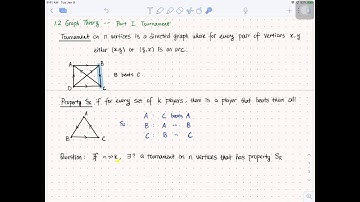 1.2 Graph Theory -- Part I. Tournament
Tournament on n vertices is a directed graph where for every pair of vertices x,y
either (x,y) or (y,x) is an arc.
A B
B beats C.
D C
Property Sk if for every set of k players, there is a player that beats them all
A
A : C beats A
S1: B : A - B
B C
C : B - C
Question: If n>>k, ∃? a tournament on n vertices that has property Sk